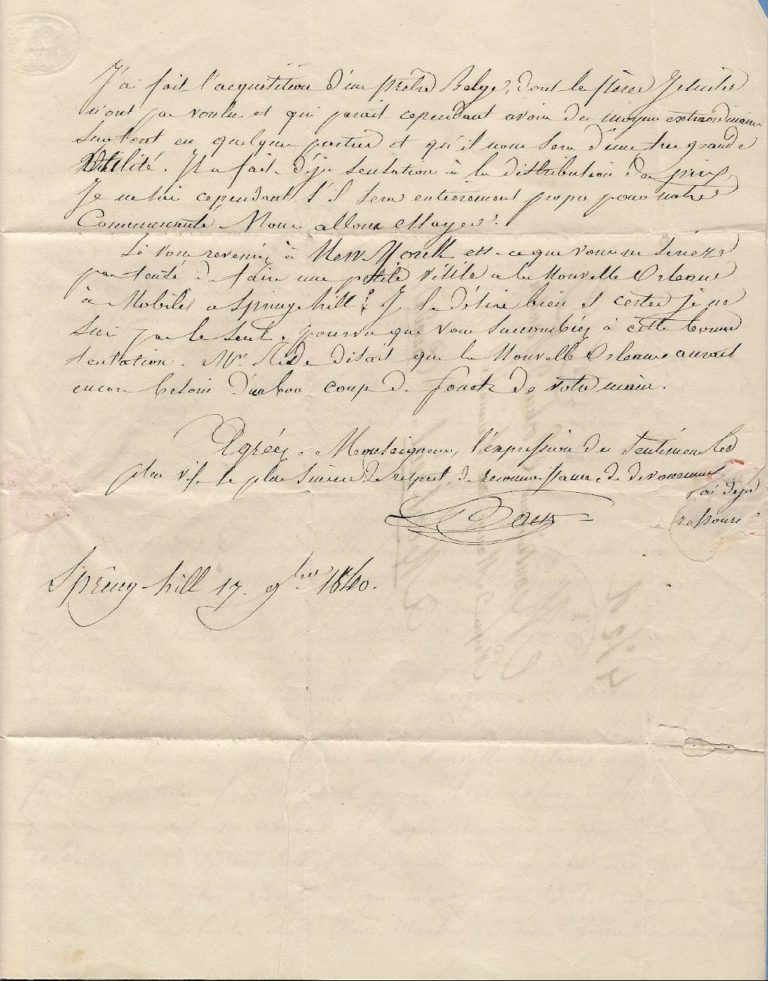 J'ai fait l'acquisition d'un prêtre Belge, dont les pères Jesuites
n'ont pas voulu et qui parait cependant avoir des moyens extraordinaires
surtout en quelques parties et qu'il nous sera d'une tres grande
utilité. Il a fait déja sensation à la distribution des prix,
Je ne sai cependant s'il sera entierement propre pour notre
Communauté Nous allons essayer.
Si vous revenez à New Yorck est-ce que vous ne serez
pas tenté de faire une petite visite a la Nouvelle Orleans
à Mobile a Spring hill? Je le désire bien et certes je ne
suis pas le seul, pourvu que vous succombiez à cette bonne
tentation. Mr. disait que la Nouvelle Orleans aurait
encore besoin d'un bon coup de de votre main.
Agréez, Monseigneur, l'expression des sentimens les
plus vifs le plus sincere de respect, de reconnaissance, de devouement
ai deja
Spring-hill 17. 9bre 1840.